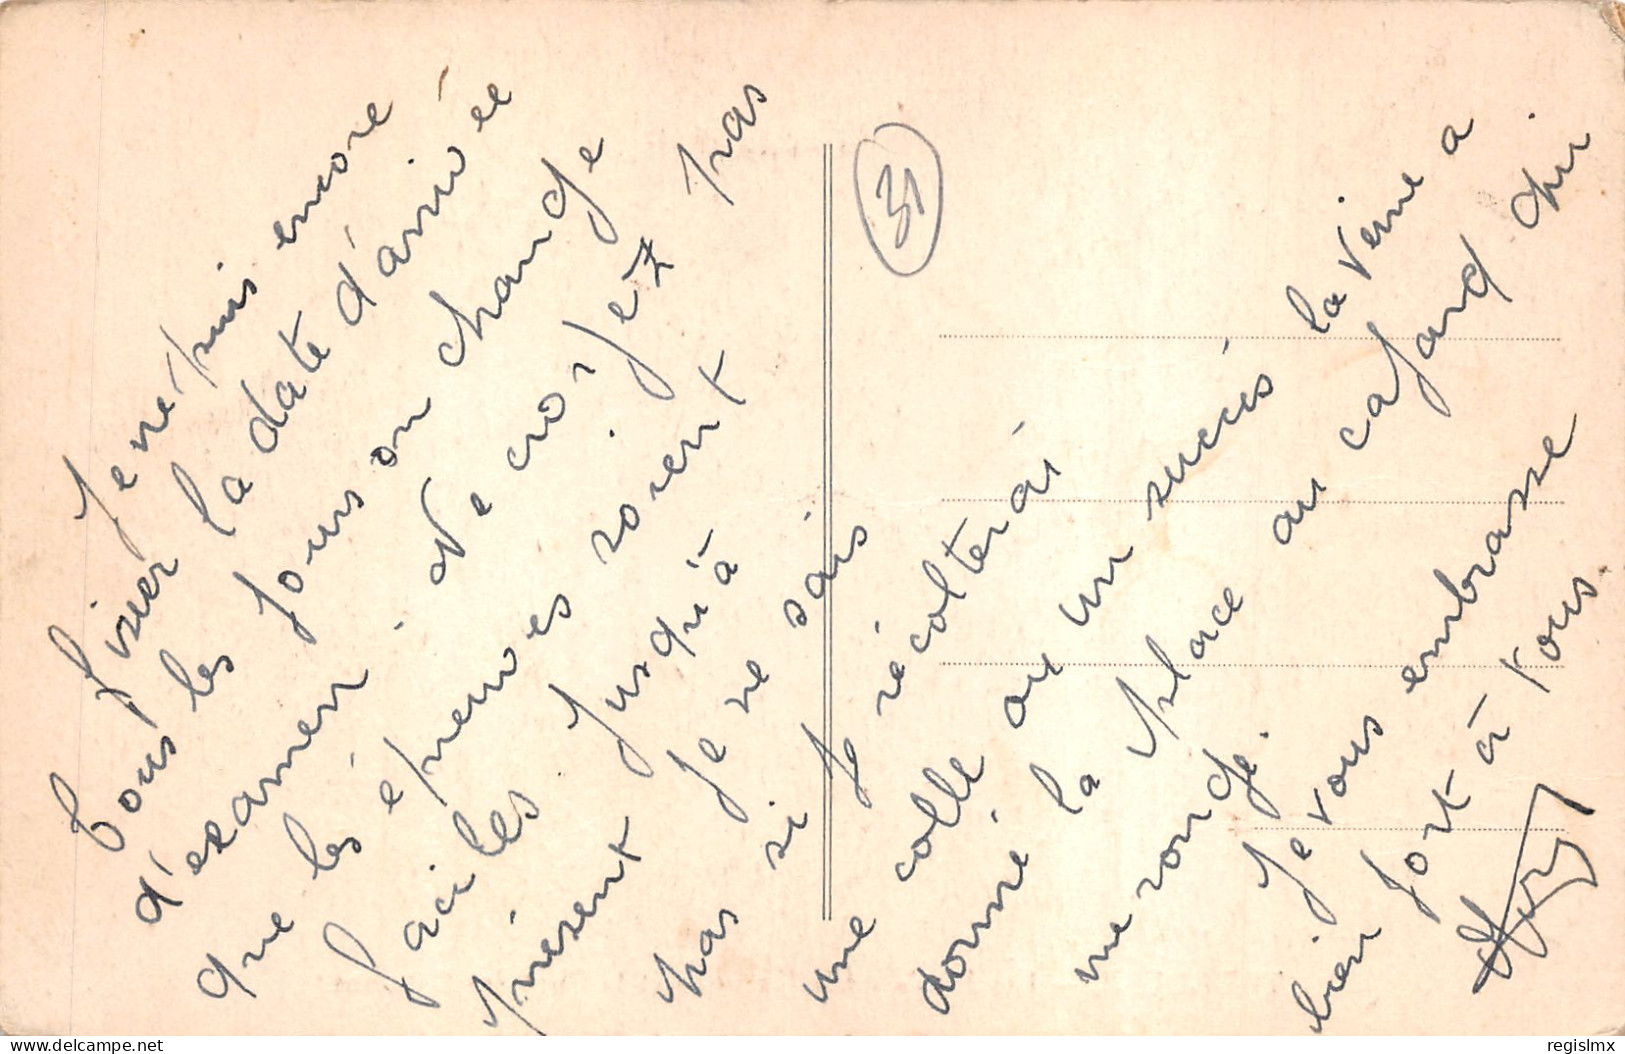 Je ne puis encore
fixer la date d'arrivée
tous les jours on change
d'examen. Ne croyez pas
que les épreuves soient
faciles jusqu'à
présent je ne sais
pas si je récolterai
une colle ou un succès la veine a
donné la place au cafard qui
me ronge.
Je vous embrasse
bien fort à tous.
31
delcampe.net
regislmx